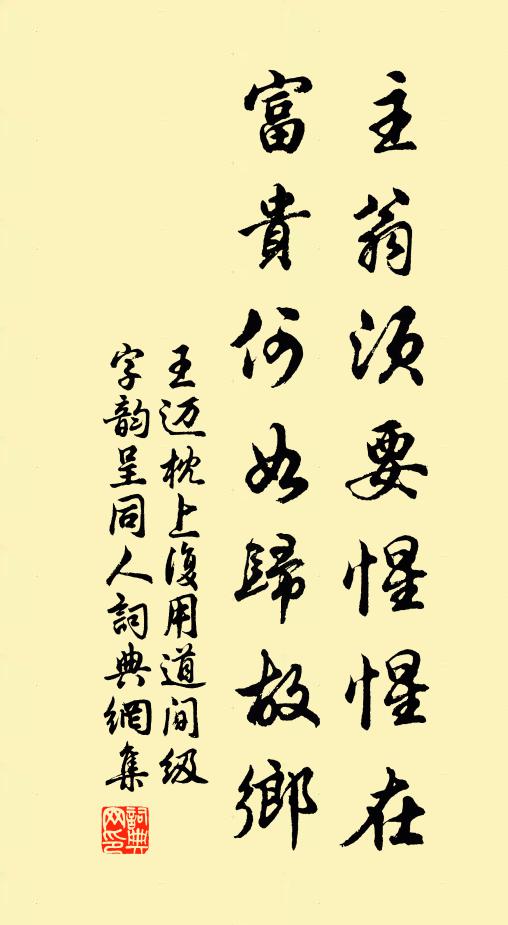 主翁须要惺惺在
富貴何如歸故鄉
王迈枕上復用道间级
字韵呈同人詞典網集
詞典网印